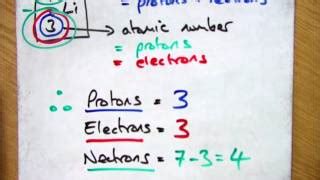 = protons + neutrons
Li
3 → atomic number
= protons
= electrons
∴ Protons = 3
Electrons = 3
Neutrons = 7-3=4